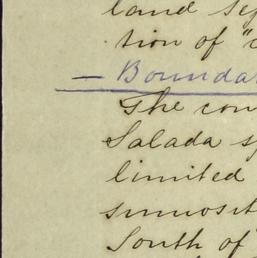 land sep
tion of "
— Bounda
The con
Salada s
limited
sinuosit
South of